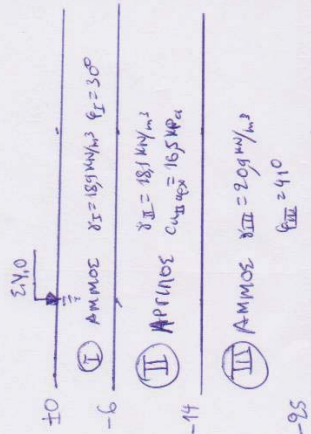 Σ.Υ.Ο
±0
I ΑΜΜΟΣ γI = 18,9 kN/m³ φI = 30°
-6
II ΑΡΓΙΛΟΣ γII = 18,1 kN/m³
cuII = 16,5 kPa
-14
III ΑΜΜΟΣ γIII = 20,9 kN/m³
φIII = 41°
-25